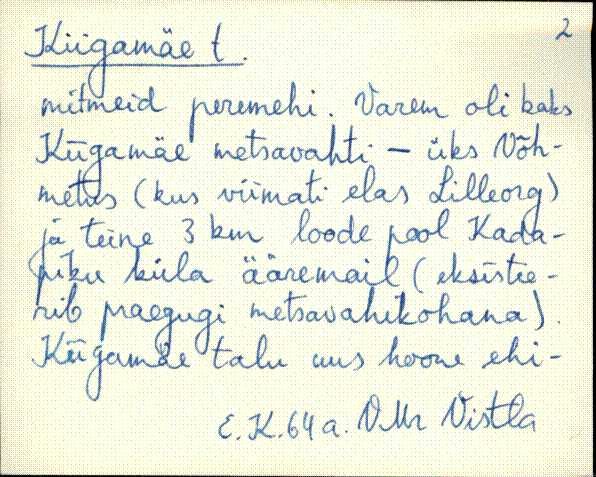 2
Kiigamäe t.
mitmeid peremehi. Varem oli kaks
Kiigamäe metsavahti – üks Võh-
metus (kus viimati elas Lilleorg)
ja teine 3 km loode pool Kada-
piku küla ääremail (eksistee-
rib praegugi metsavahikohana).
Kiigamäe talu uus hoone ehi-
E.K. 64 a. VMr Vistla